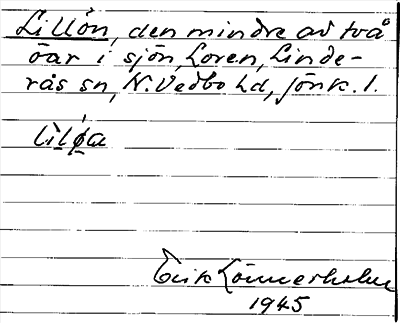 Lillön, den mindre av två
öar i sjön Loren, Linde-
rås sn, N. Vedbo hd, Jönk. l.
lìlǿa
Erik Lönnerholm
1945